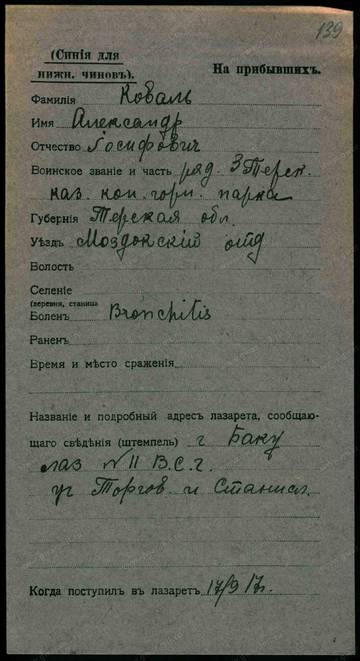 139
(Синія для
нижн. чиновъ).
На прибывшихъ.
Фамилія Коваль
Имя Александр
Отчество Іосифович
Воинское званіе и часть ряд. 3 Терск.
каз. кон. горн. парка
Губернія Терская обл.
Уѣздъ Моздокскій отд
Волость
Селеніе
(деревня, станица)
Боленъ Bronchitis
Раненъ
Время и мѣсто сраженія
Названіе и подробный адресъ лазарета, сообщаю-
щаго свѣдѣнія (штемпель) г Баку
лаз N 11 В.С.г.
уг Торгов. и Станисл.
Когда поступилъ въ лазаретъ 17/9 17г.